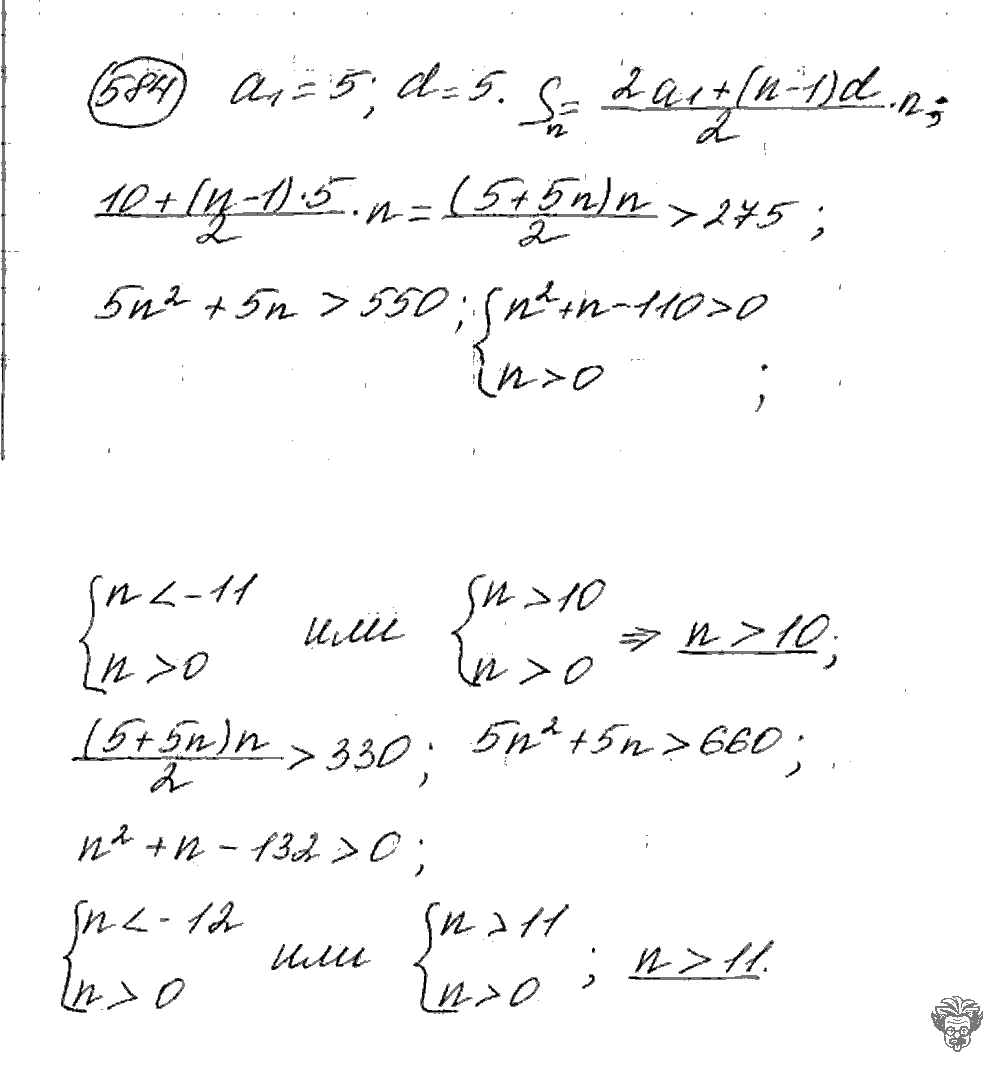 584 a₁ = 5; d = 5. Sₙ = (2a₁ + (n-1)d)/2 · n;
(10 + (n-1)·5)/2 · n = ((5 + 5n)n)/2 > 275;
5n² + 5n > 550; { n² + n - 110 > 0
n > 0 ;
{ n < -11 или { n > 10 ⇒ n > 10;
n > 0 n > 0
((5 + 5n)n)/2 > 330; 5n² + 5n > 660;
n² + n - 132 > 0;
{ n < -12 или { n > 11 ; n > 11.
n > 0 n > 0